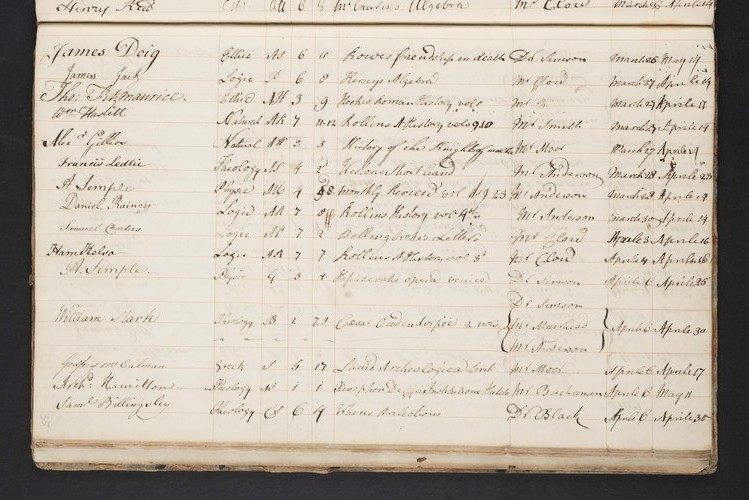 Henry Reid Ethi AU 6 8 McLaurins Algebra Mr Clow March 26 Aprile 14
James Doig Ethic AS 6 10 Rowes friendship in death Dr Simson March 26 May 14
James Jack Logic B 6 8 Kerseys Algebra Mr Clow March 27 Aprile 14
Tho: Fitzmaurice Ethic AH 3 9 Hookes Roman History vol Mr March 27 Aprile 17
Wm Haslitt Natural AR 7 11.12 Rollins A History vols 9 10 Mr Smith March 27 Aprile 14
Alexr Gillies Natural 3 5 History of the Knights of Mr Moor March 27 Aprile 4
Francis Leslie Theology AS 4 2 Short hand Mr Anderson March 28 Aprile 23
A Semple Physic 4 monthly Review vol 19 23 Mr Anderson March 28 Aprile 14
Daniel Rainey Logic AR 7 8 Rollins History vol 4th Mr Anderson March 30 Aprile 14
Samuel Logic 7 2 Bollingbrokes Letters Mr Clow Aprile 3 Aprile 16
Logic AR 7 7 Rollins A History vol 3d Mr Clow Aprile 4 Aprile 16
A. Semple Physic G 3 4 Hipocrates opera Dr Simson Aprile 6 Aprile 25
Dr Simson
William Stark Theology B 2 7.8 Oudendorpii 2 vols Mr Muirhead Aprile 6 Aprile 30
Mr Anderson
Godfrey Greek S 5 17 Luid Archeologica Brit Mr Moor Aprile 6 Aprile 17
Archd Hamilton Theology 1 1 Xenophon De Cyri Institutione Mr Buchanan Aprile 6 May 11
Saml Billingsley Theology 6 4 Dr Black Aprile 6 Aprile 30